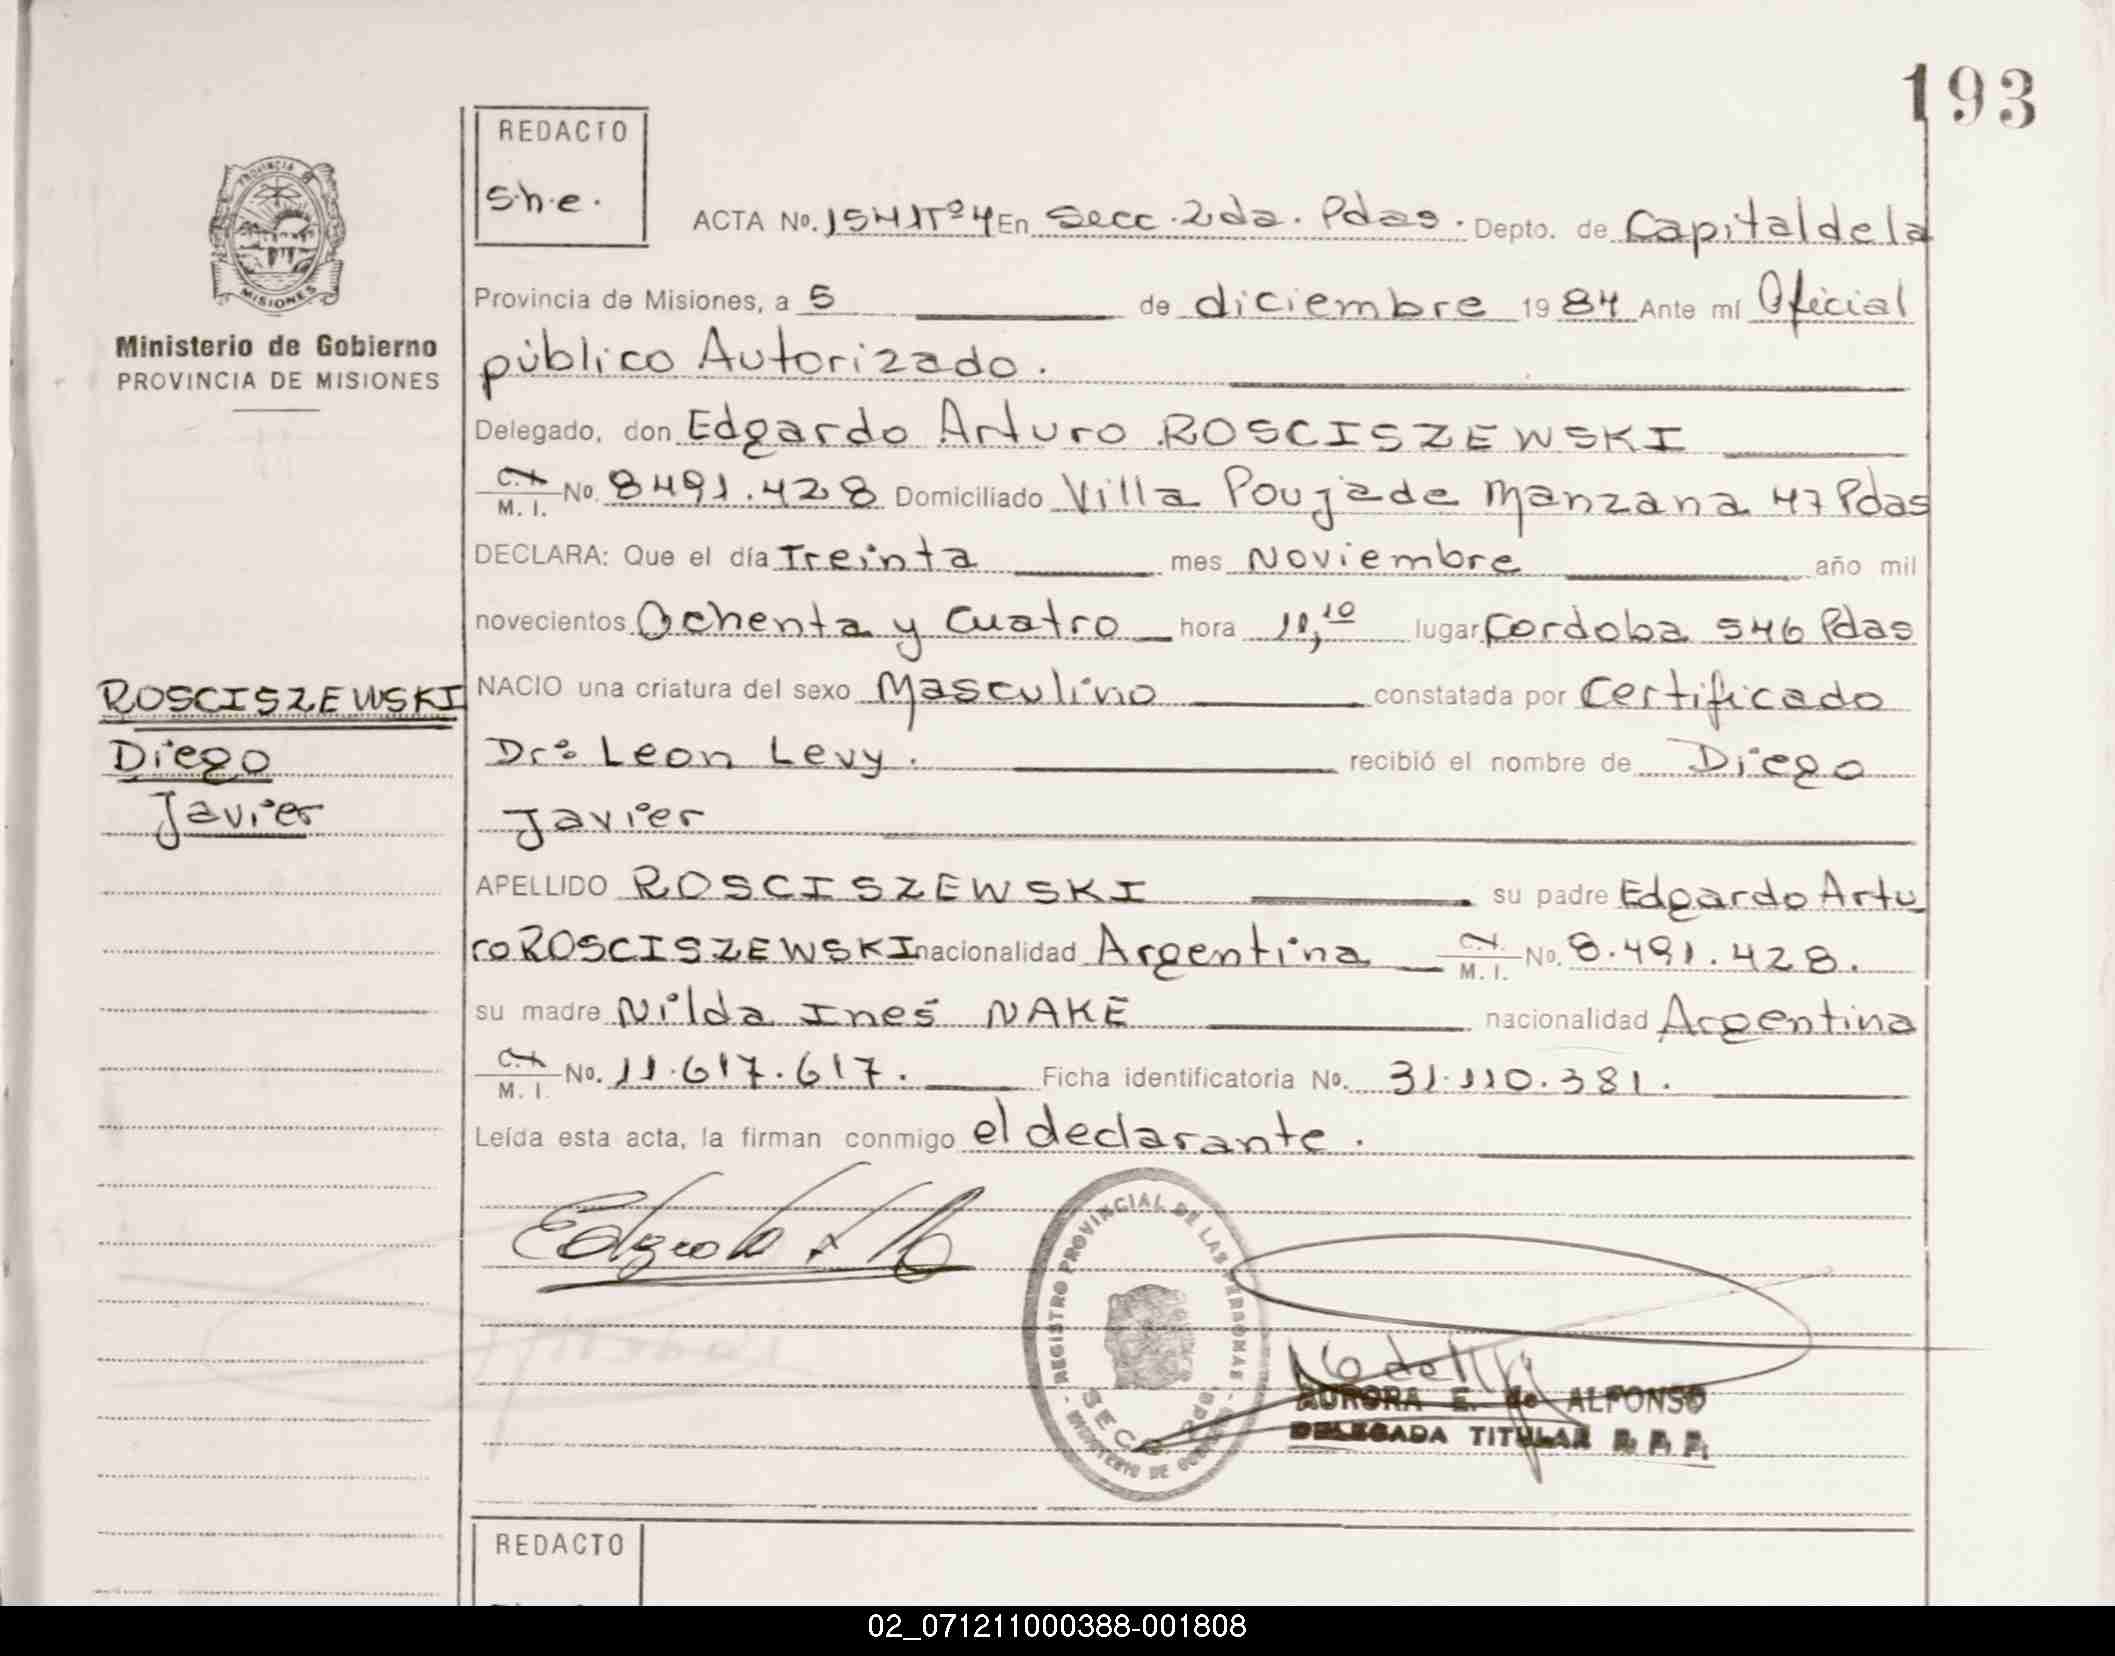 193
REDACTO
s.h.e.
ACTA No. 1541Tº4 En Secc. 2da. Pdas. Depto. de Capital de la
PROVINCIA DE
MISIONES
Ministerio de Gobierno
PROVINCIA DE MISIONES
Provincia de Misiones, a 5 de diciembre 1984 Ante mí Oficial
público Autorizado.
Delegado, don Edgardo Arturo ROSCISZEWSKI
C.I. M. I. No. 8491.428 Domiciliado Villa Poujade Manzana 47 Pdas
DECLARA: Que el día Treinta mes Noviembre año mil
novecientos Ochenta y Cuatro hora 11,10 lugar Cordoba 546 Pdas
NACIO una criatura del sexo Masculino constatada por Certificado
Dr: Leon Levy. recibió el nombre de Diego
Javier
ROSCISZEWSKI
Diego
Javier
APELLIDO ROSCISZEWSKI su padre Edgardo Artu
ro ROSCISZEWSKI nacionalidad Argentina C.I. M. I. No. 8.491.428.
su madre Nilda Ines NAKE nacionalidad Argentina
C.I. M. I. No. 11.617.617. Ficha identificatoria No. 31.110.381.
Leída esta acta, la firman conmigo el declarante.
REGISTRO PROVINCIAL DE LAS PERSONAS
SECC. 2da
MINISTERIO DE GOBIERNO
AURORA E. de ALFONSO
DELEGADA TITULAR R. P. P.
REDACTO
02_071211000388-001808